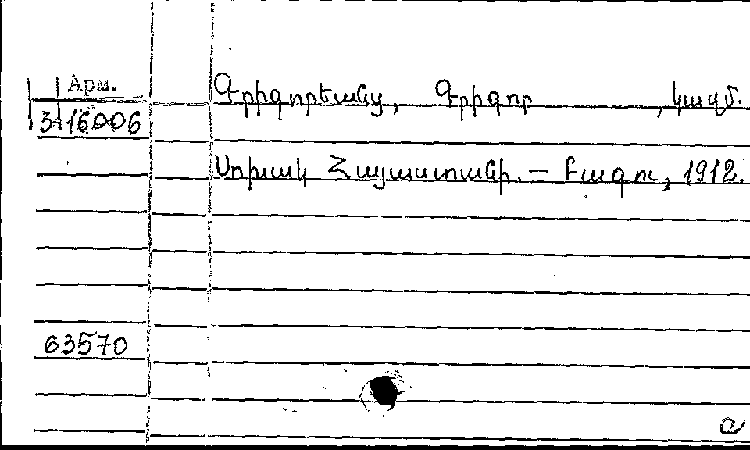 Арм.
Գրիգորեանց, Գրիգոր, կազմ.
3-16006
Սոխակ Հայաստանի. — Բագու, 1912.
63570
a